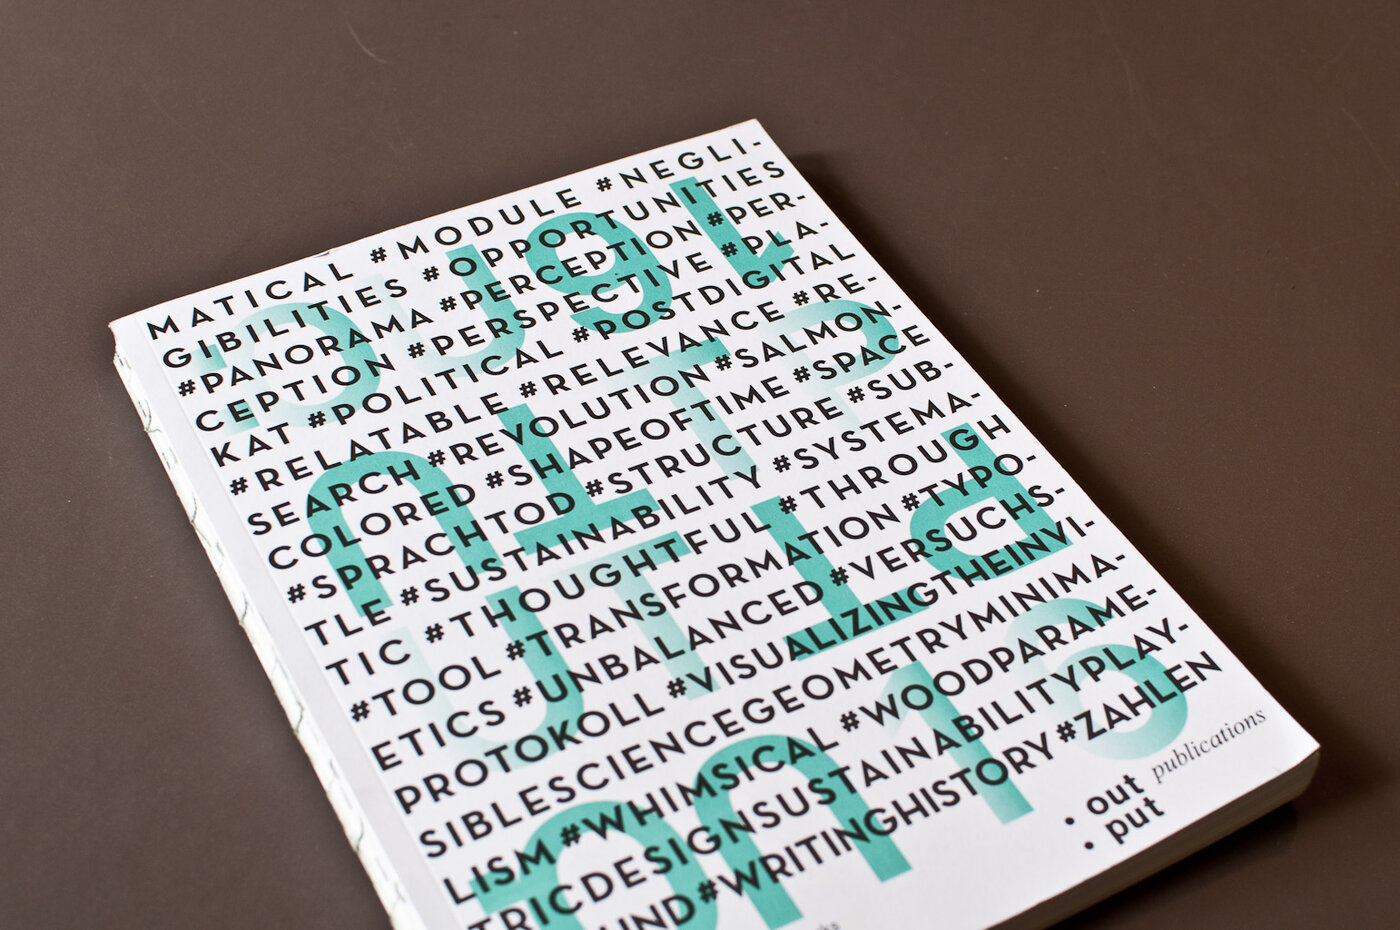 MATICAL #MODULE #NEGLI-
GIBILITIES #OPPORTUNITIES
#PANORAMA #PERCEPTION #PER-
CEPTION #PERSPECTIVE #PLA-
KAT #POLITICAL #POSTDIGITAL
#RELATABLE #RELEVANCE #RE-
SEARCH #REVOLUTION #SALMON-
COLORED #SHAPEOFTIME #SPACE
#SPRACHTOD #STRUCTURE #SUB-
TLE #SUSTAINABILITY #SYSTEMA-
TIC #THOUGHTFUL #THROUGH
#TOOL #TRANSFORMATION #TYPO-
ETICS #UNBALANCED #VERSUCHS-
PROTOKOLL #VISUALIZINGTHEINVI-
SIBLESCIENCEGEOMETRYMINIMA-
LISM #WHIMSICAL #WOODPARAME-
TRICDESIGNSUSTAINABILITYPLAY-
#WRITINGHISTORY #ZAHLEN
• out publications
• put